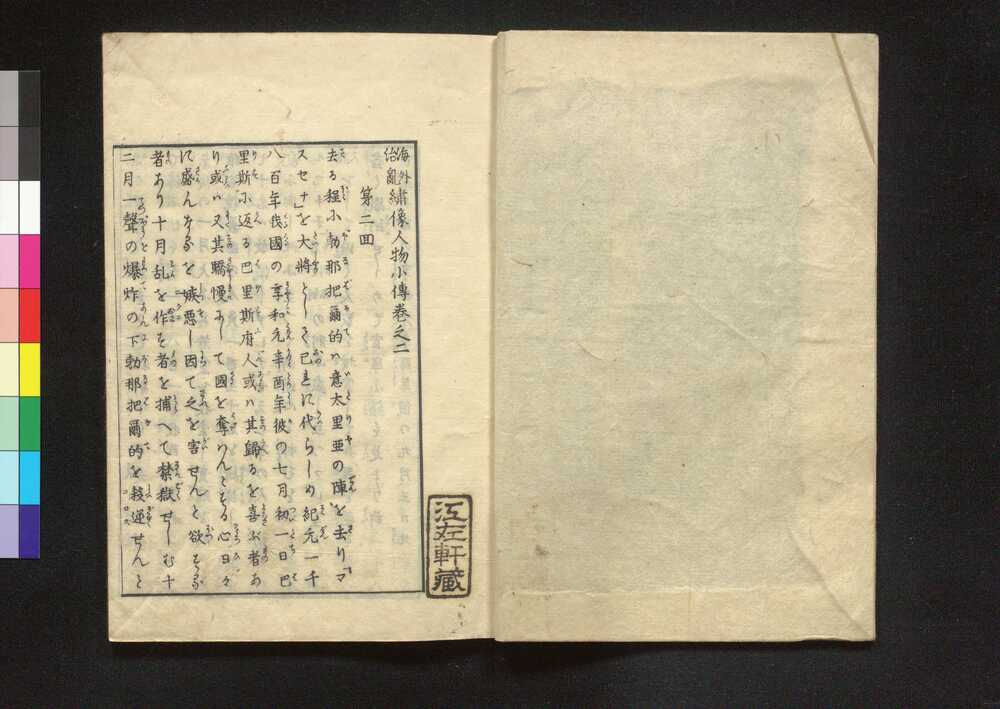 海外治亂繡像人物小傳卷之二
第二回
去る程小勃那把爾的ハ意太里亜の陣を去り「マ
スセナ」を大將として己れに代らしめ紀元一千
八百年我國の享和元辛酉年彼の七月初一日巴
里斯小返る巴里斯府人或ハ其歸るを喜ぶ者あ
り或ハ又其驕慢して國を奪んとする心日々
に盛んなるを嫉悪し因て之を害せんと欲する
者あり十月乱を作す者を捕へて禁獄せしむ十
二月一聲の爆炸の下勃那把爾的を殺逆せんと
江左軒藏